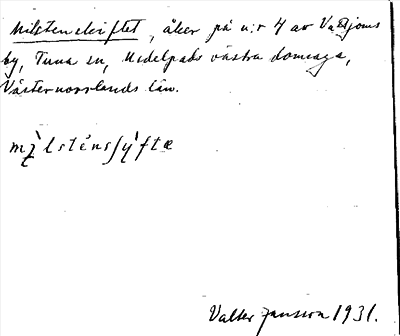 Milstensskiftet, åker på n:r 4 av Vattjoms
by, Tuna sn, Medelpads västra domsaga,
Västernorrlands län.
mı̨̀lsténsʃỳ̨ftæ
Valter Jansson 1931.